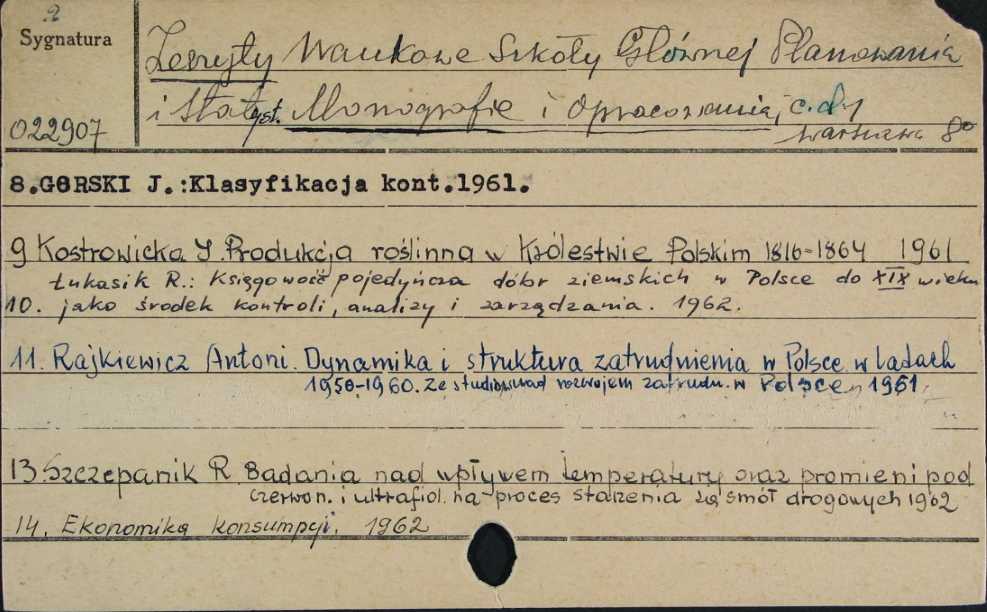 2
Sygnatura
022907
Zeszyty Naukowe Szkoły Głównej Planowania
i Statyst. Monografie i Opracowania, c.d.
Warszawa 8°
8.GORSKI J.:Klasyfikacja kont.1961.
9 Kostrowicka I. Produkcja roślinna w Królestwie Polskim 1816-1864 1961
Łukasik R.: Księgowość pojedyńcza dóbr ziemskich w Polsce do XIX wieku
10. jako środek kontroli, analizy i zarządzania. 1962.
11. Rajkiewicz Antoni. Dynamika i struktura zatrudnienia w Polsce w ladach
1950-1960. Ze studiów nad rozwojem zatrudn. w Polsce, 1961.
13. Szczepanik R. Badania nad wpływem temperatury oraz promieni pod
czerwon. i ultrafiol. na proces starzenia się smół drogowych 1962
14. Ekonomika konsumpcji. 1962